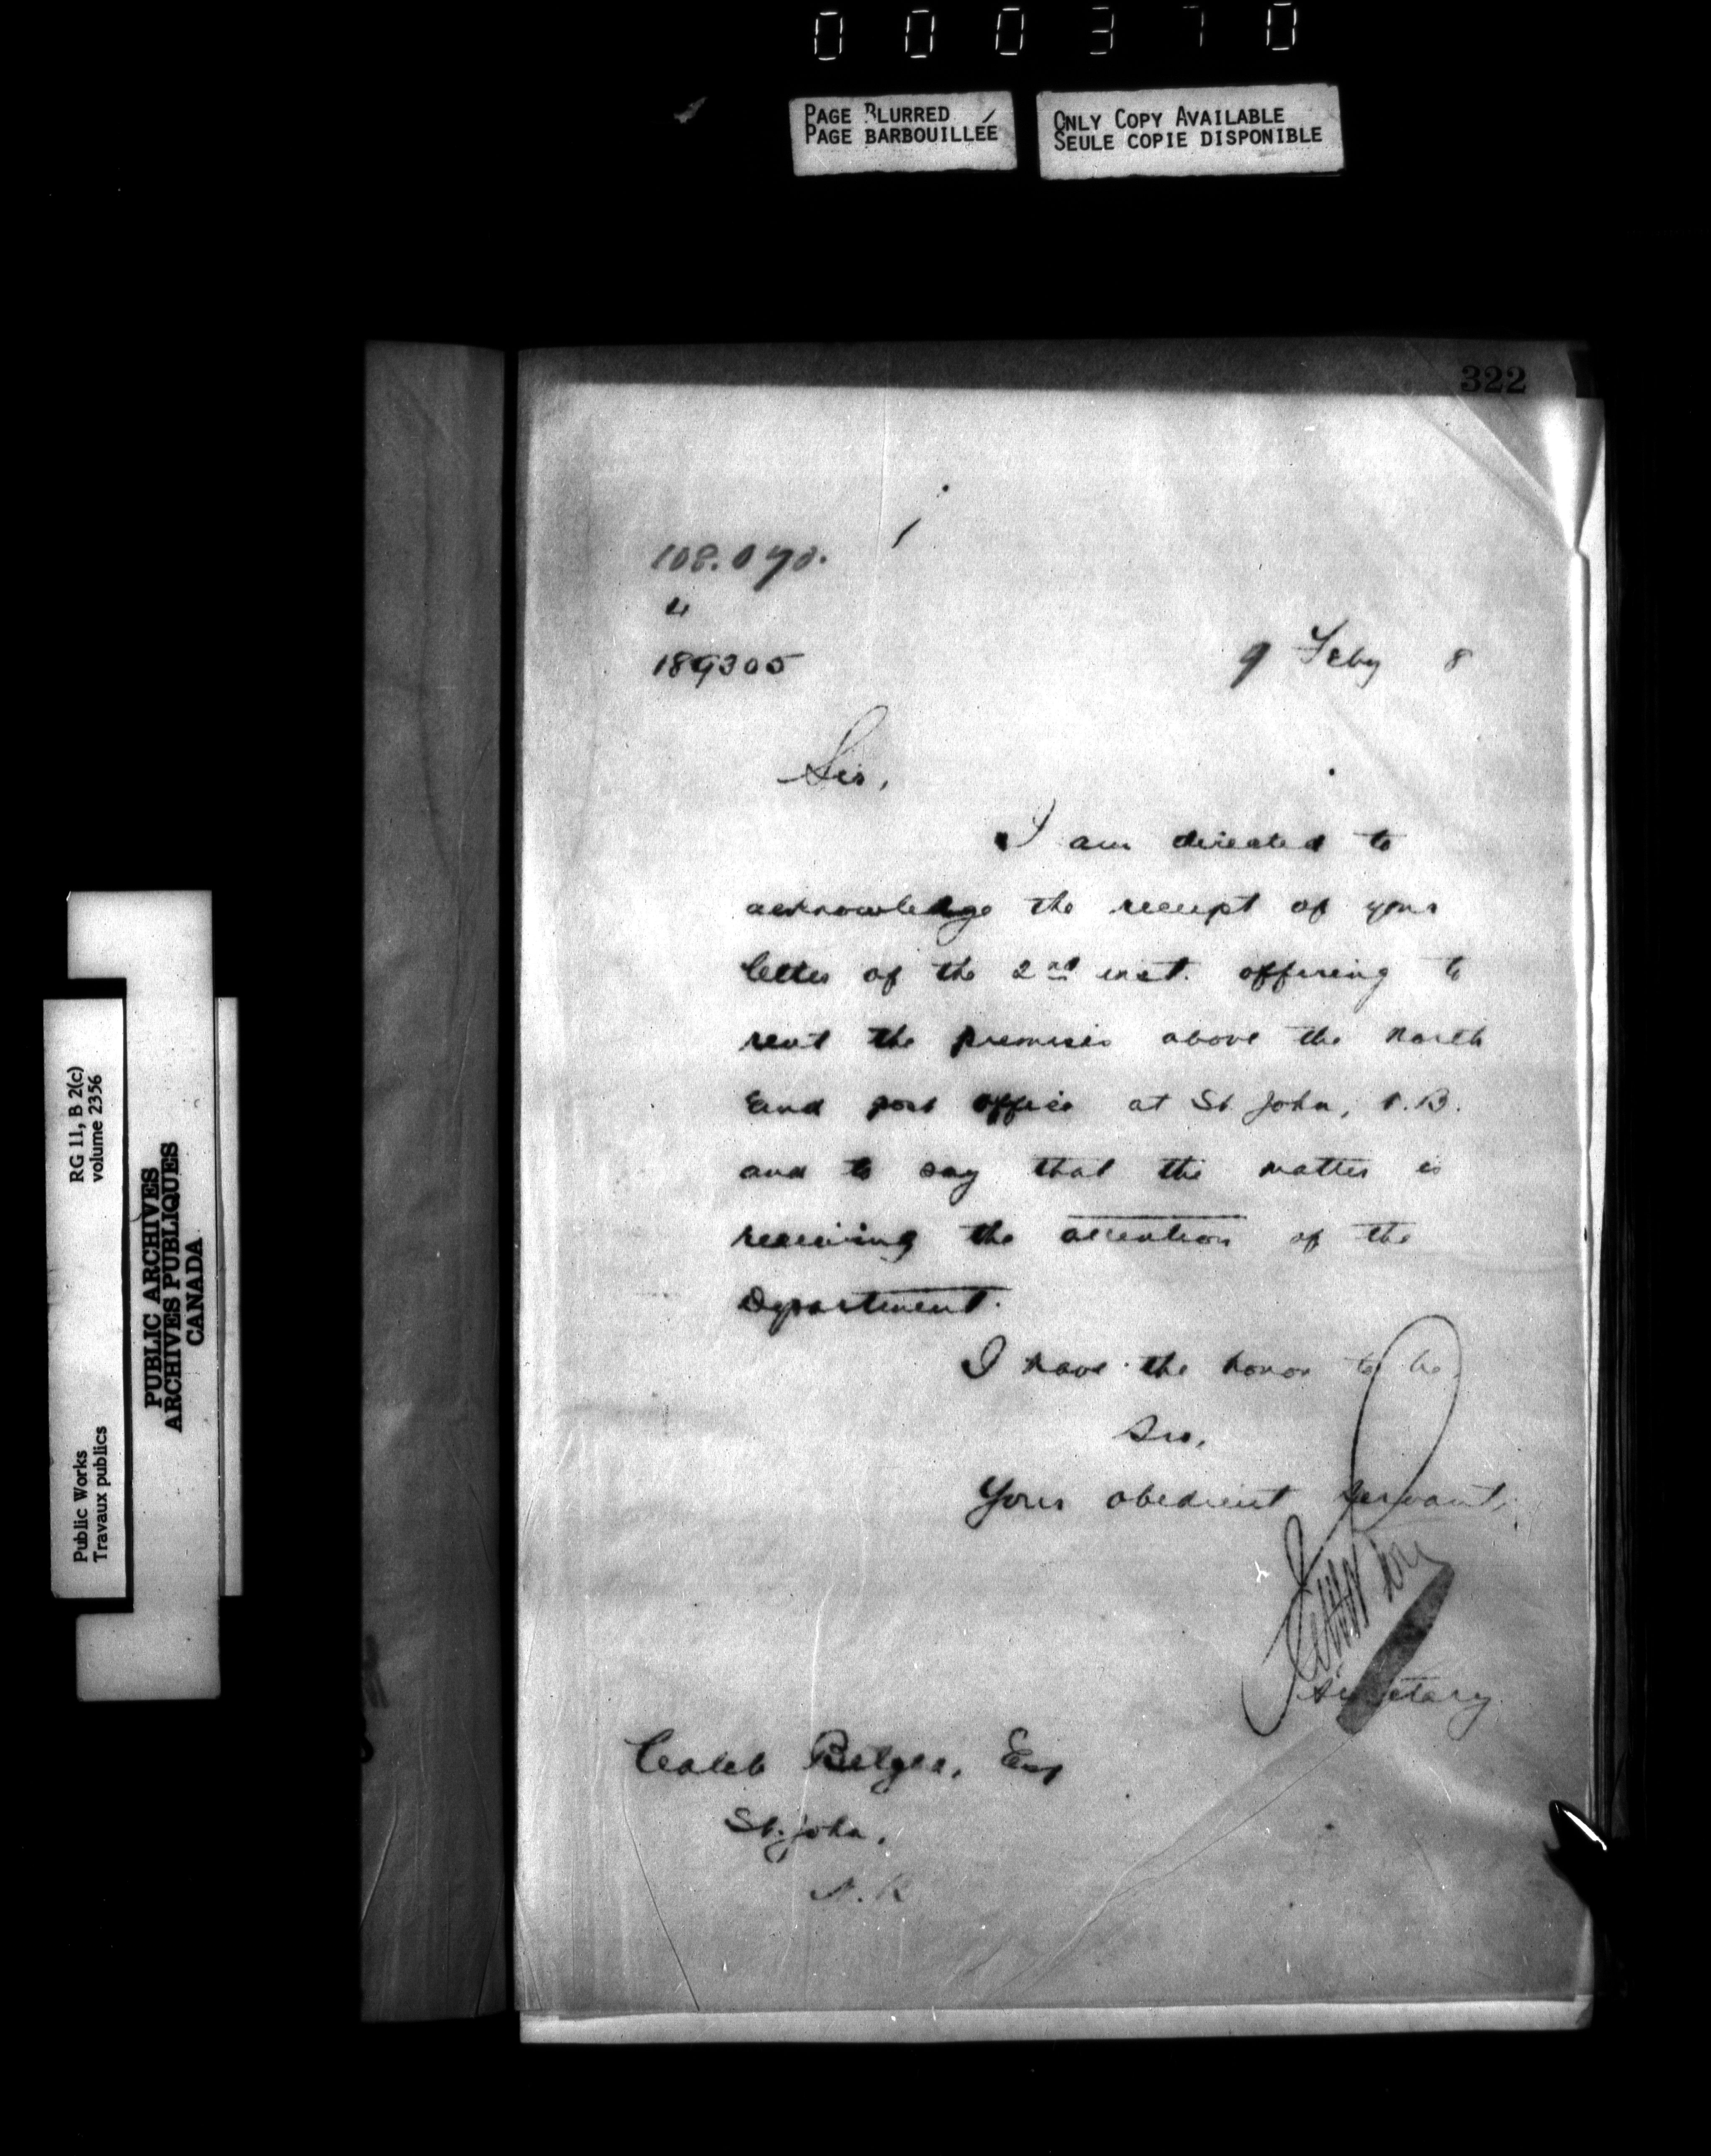 0 0 0 3 7 0
PAGE BLURRED
PAGE BARBOUILLÉE
ONLY COPY AVAILABLE
SEULE COPIE DISPONIBLE
322
108.070.
4
189305
9 Feby 8
Sir,
I am directed to
acknowledge the receipt of your
letter of the 2nd inst. offering to
rent the premises above the North
End post office at St. John, N.B.
and to say that the matter is
receiving the attention of the
Department.
I have the honor to be
Sir,
Your obedient servant,
Secretary
Caleb Esq
St. John,
N.B
RG 11, B 2(c)
volume 2356
Public Works
Travaux publics
PUBLIC ARCHIVES
ARCHIVES PUBLIQUES
CANADA